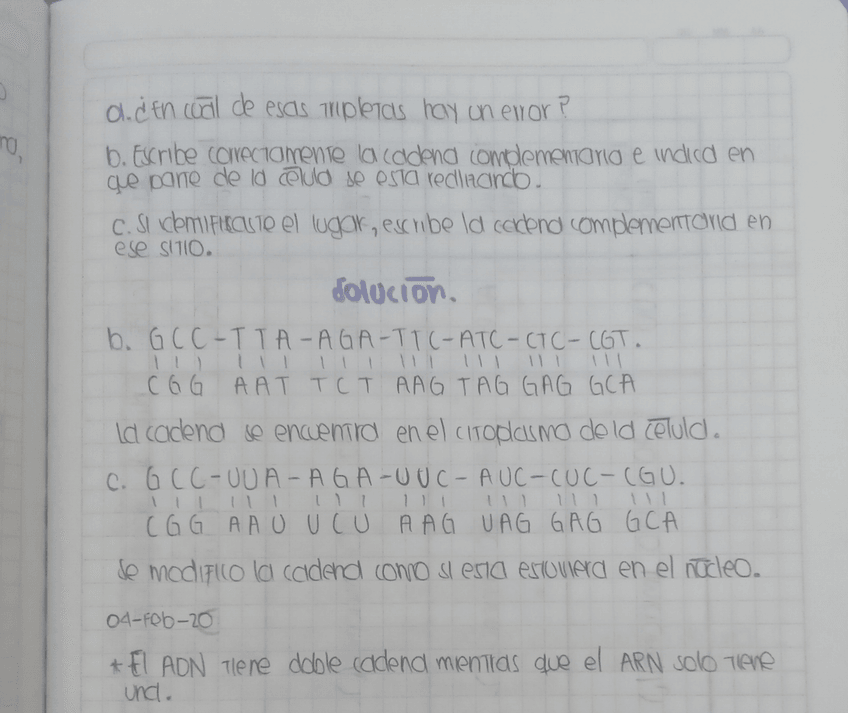 a. ¿En cuāl de esas tripletas hay un error?
b. Escribe correctamente la cadena complementaria e indica en
que parte de la cēlula se esta realizando.
c. Si identificaste el lugar, escribe la cadena complementaria en
ese sitio.
Soluciōn.
b. GCC-TTA-AGA-TTC-ATC-CTC-CGT.
CGG AAT TCT AAG TAG GAG GCA
La cadena se encuentra en el citoplasma de la cēlula.
c. GCC-UUA-AGA-UUC-AUC-CUC-CGU.
CGG AAU UCU AAG UAG GAG GCA
Se modifico la cadena como si esta estuviera en el nūcleo.
04-Feb-20
* El ADN tiene doble cadena mientras que el ARN solo tiene
una.